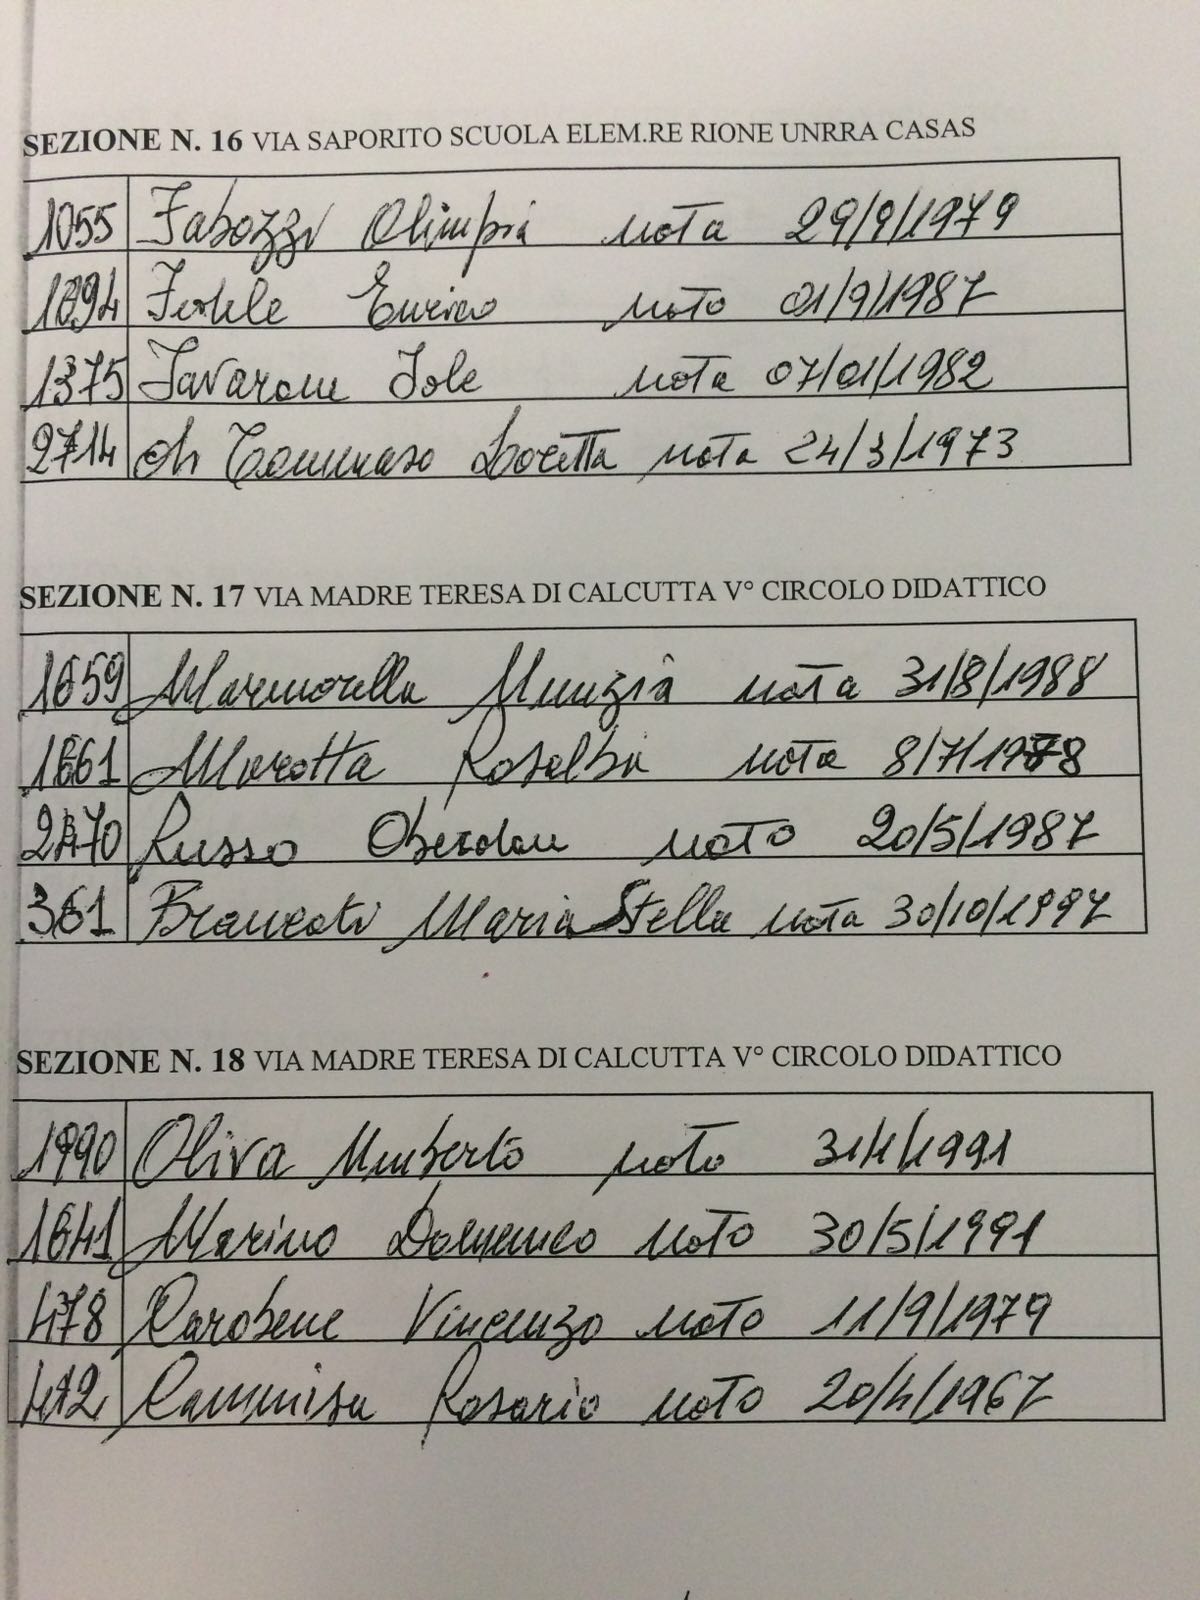 SEZIONE N. 16 VIA SAPORITO SCUOLA ELEM.RE RIONE UNRRA CASAS
1055 Fabozzi Olimpia nata 29/9/1979
1094 Fedele Enrico nato 01/9/1987
1375 Iavarone Iole nata 07/01/1982
2714 di Tommaso Loretta nata 24/3/1973
SEZIONE N. 17 VIA MADRE TERESA DI CALCUTTA V° CIRCOLO DIDATTICO
1659 Marmorella Nunzia nata 31/8/1988
1661 Marotta Rosalba nata 8/7/1978
2470 Russo Oberdan nato 20/5/1987
361 Brancati Maria Stella nata 30/10/1997
SEZIONE N. 18 VIA MADRE TERESA DI CALCUTTA V° CIRCOLO DIDATTICO
1990 Oliva Umberto nato 31/1/1991
1641 Marino Domenico nato 30/5/1991
478 Carobene Vincenzo nato 11/9/1979
412 Cammisa Rosario nato 20/4/1967